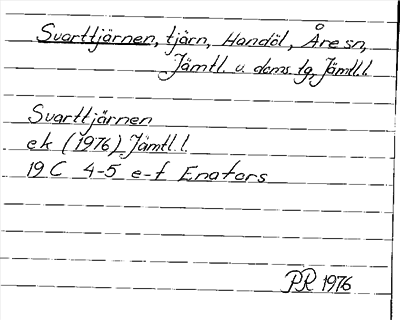 Svarttjärnen, tjärn, Handöl, Åre sn,
Jämtl. v. doms. tg, Jämtl.l.
Svarttjärnen
ek (1976) Jämtl.l.
19 C 4-5 e-f Enafors
PR 1976